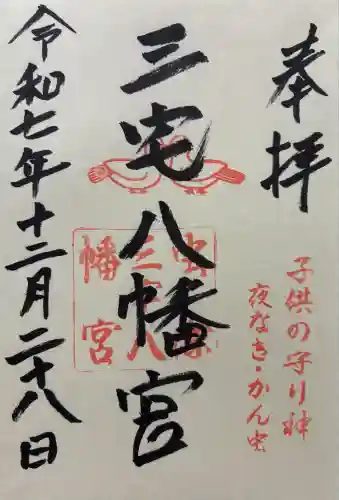 奉拝
子供の守り神
夜なき・かん虫
三宅八幡宮
令和七年十二月二十八日